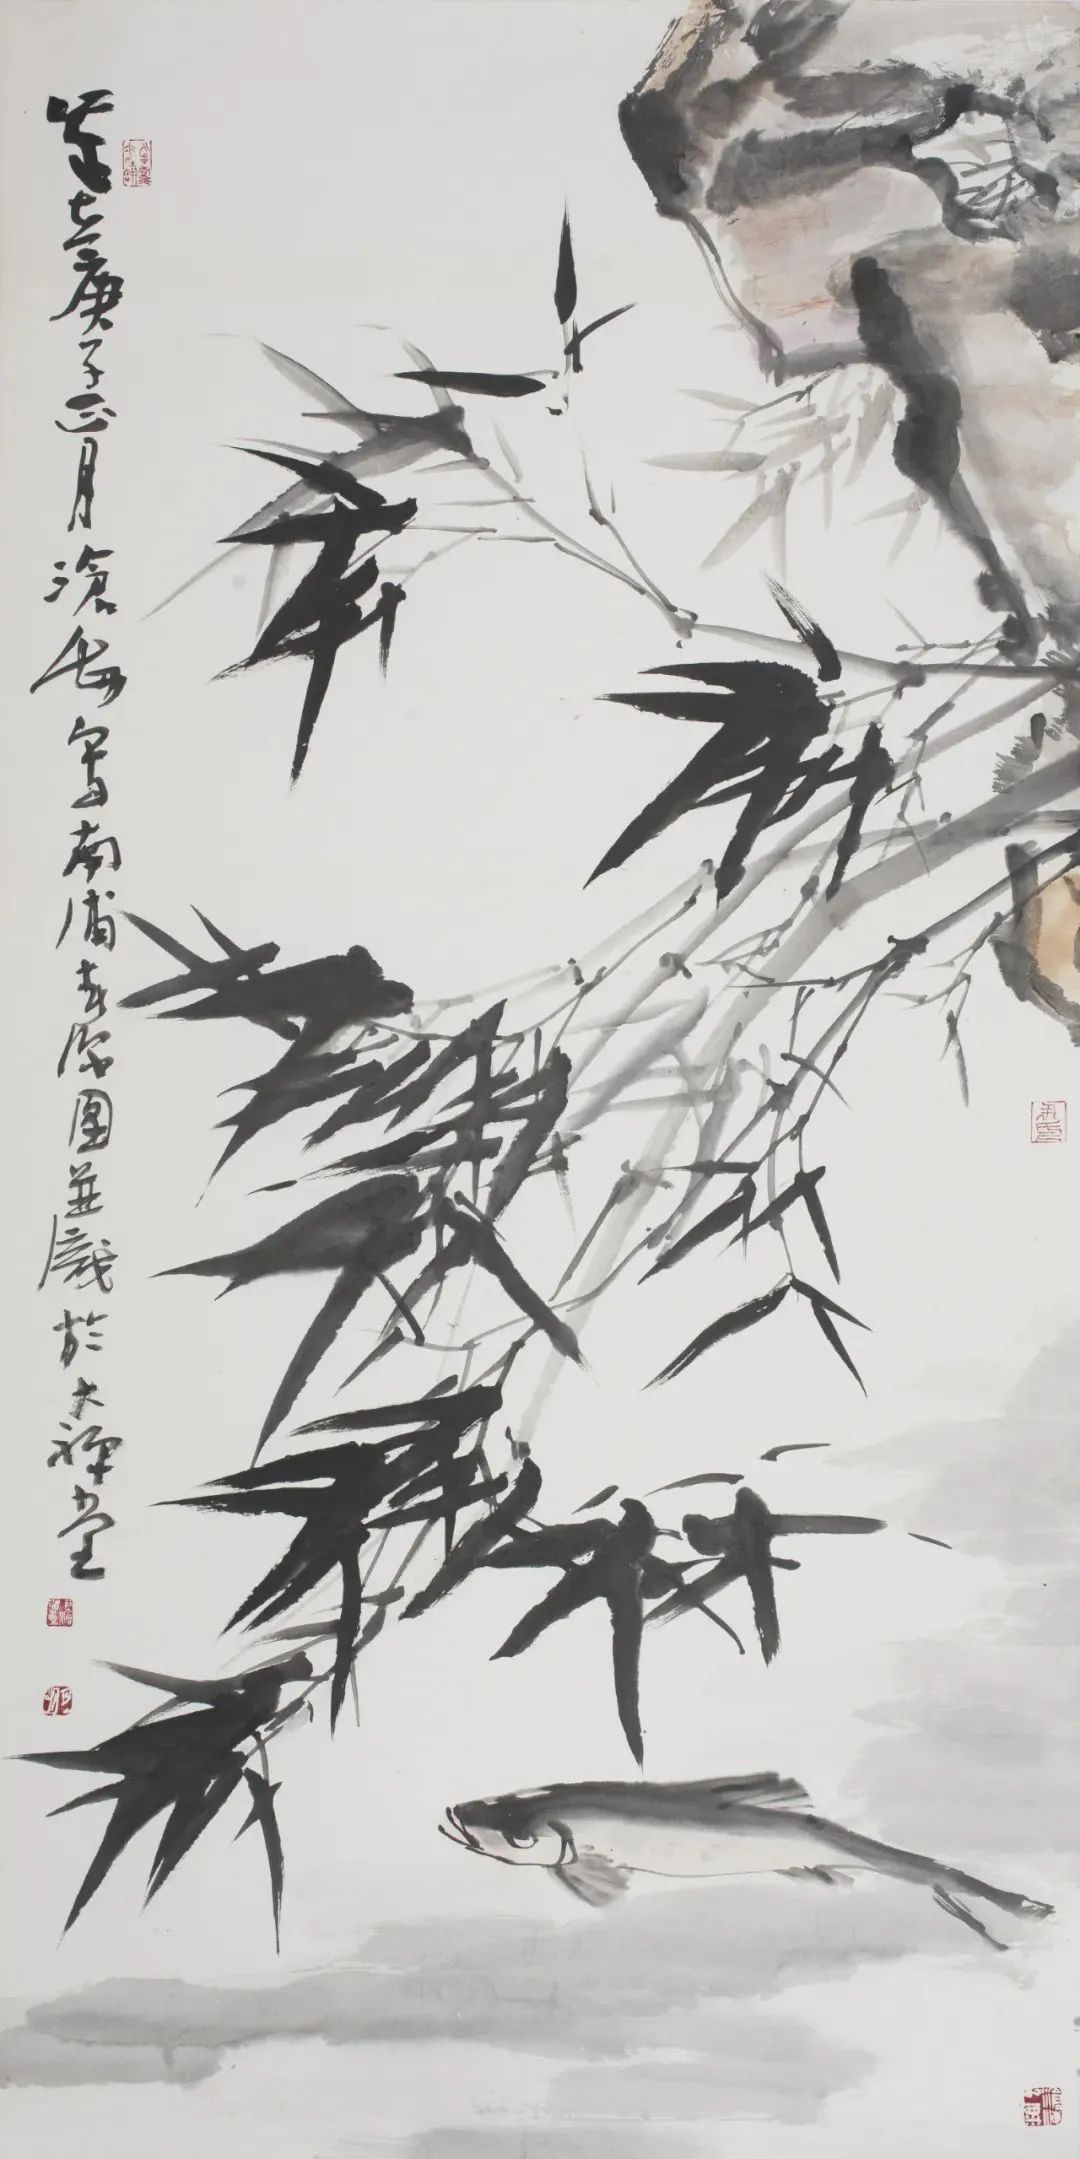 歲在庚子正月滄海寫南浦春深圖並識於大禪堂